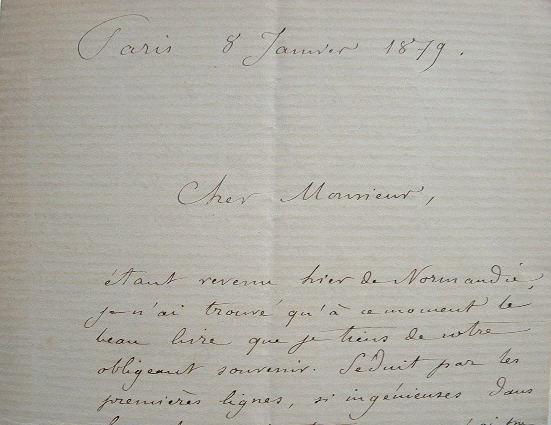 Paris 8 Janvier 1879.
Cher Monsieur,
étant revenu hier de Normandie,
je n'ai trouvé qu'à ce moment le
beau livre que je tiens de votre
obligeant souvenir. Séduit par les
premières lignes, si ingénieuses dans